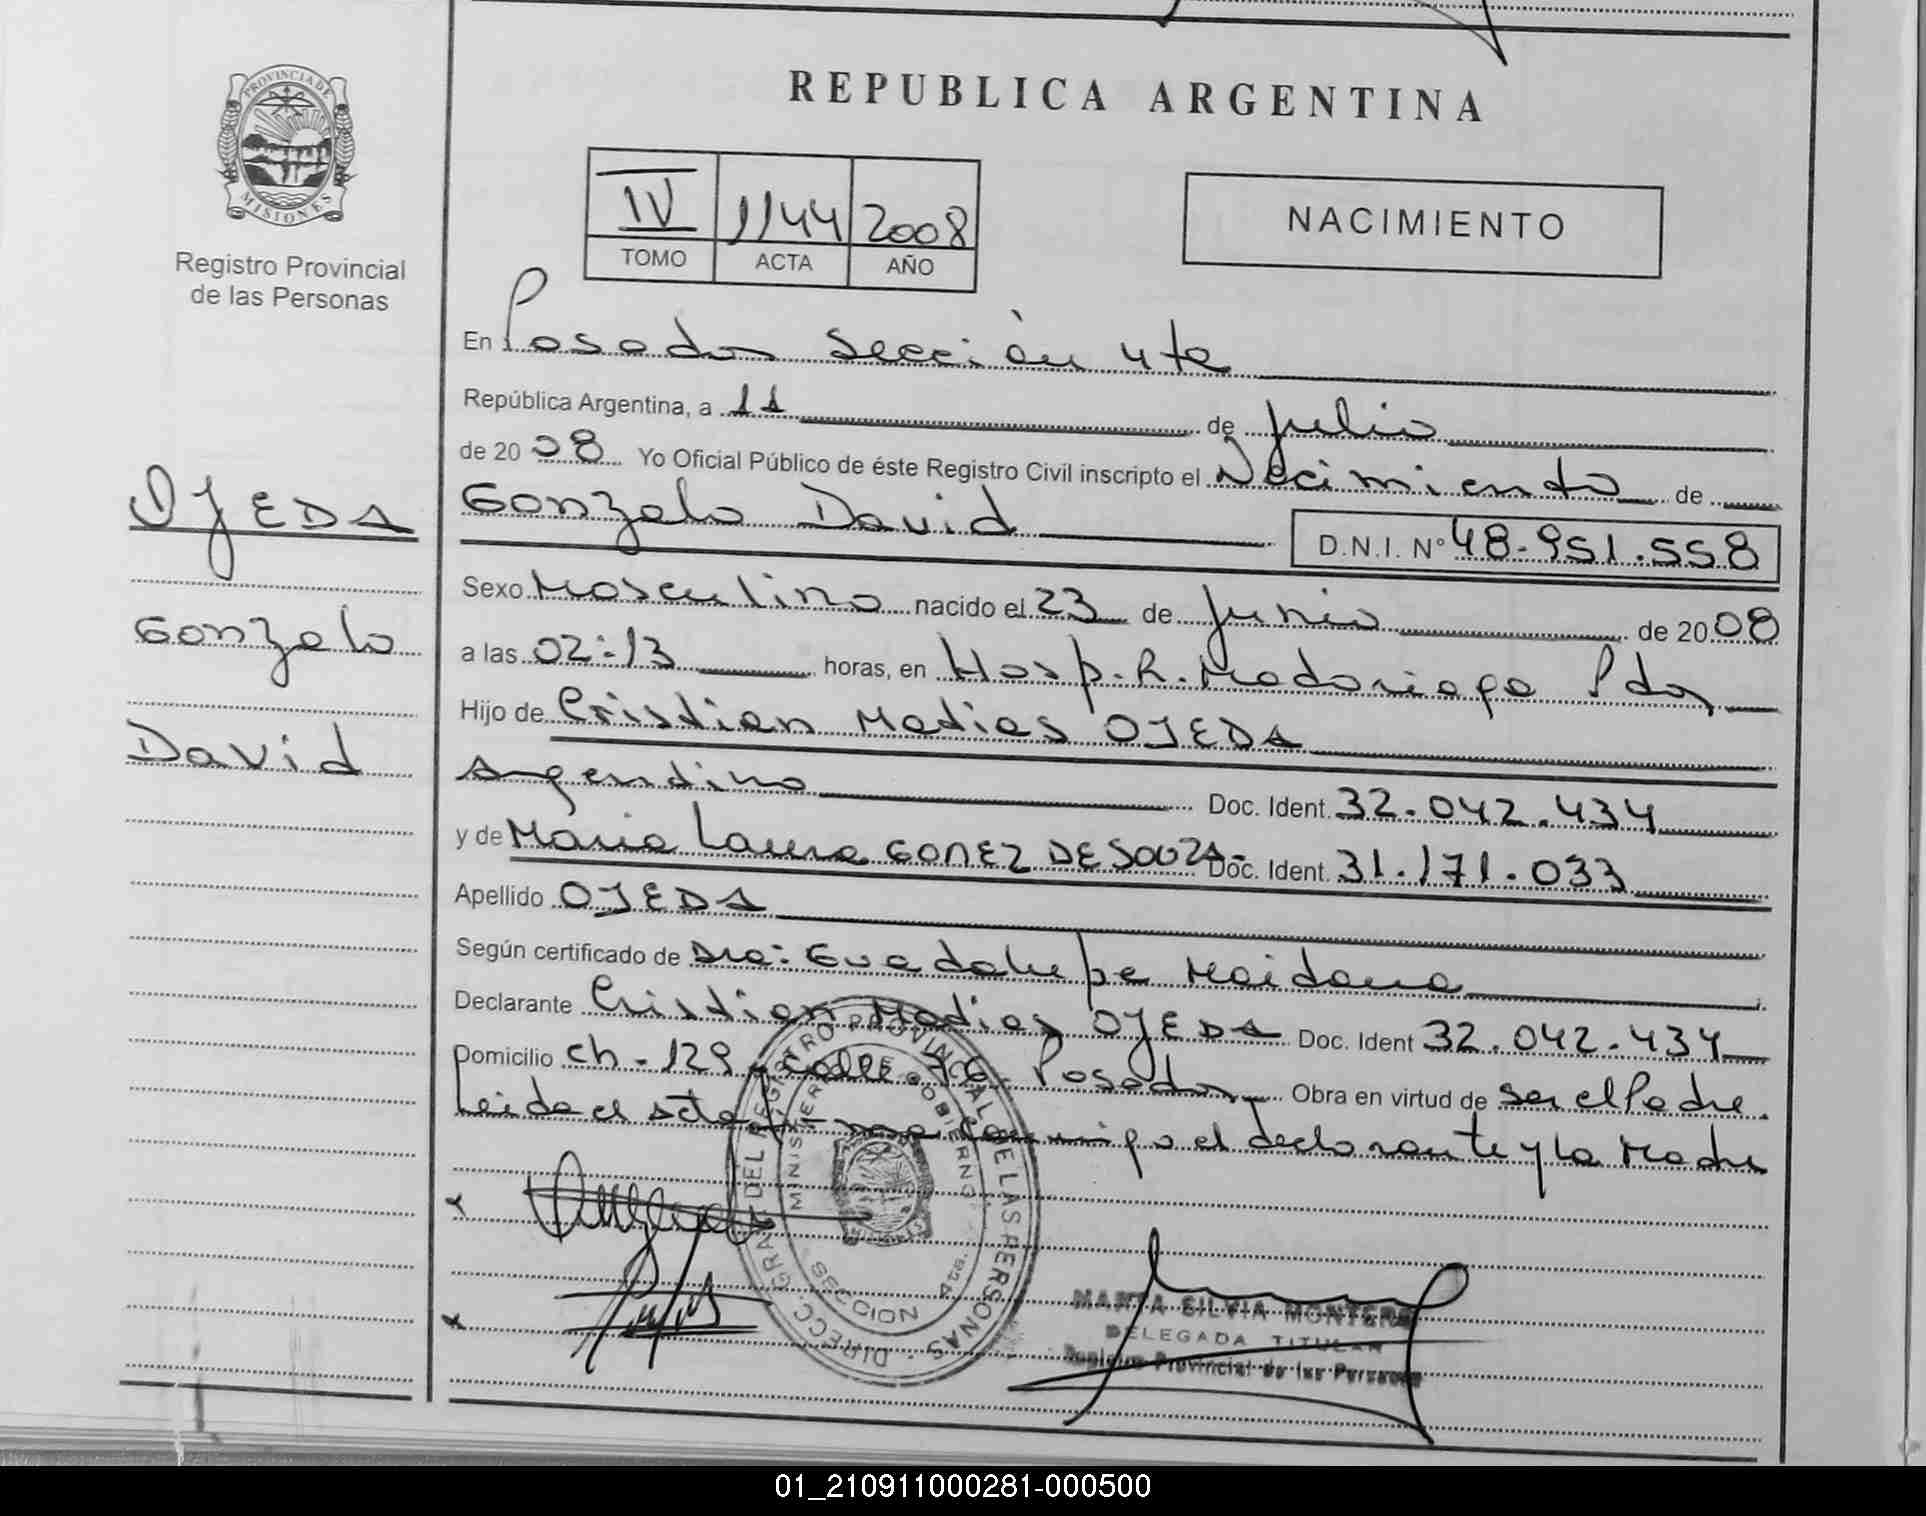 PROVINCIA DE
MISIONES
Registro Provincial
de las Personas
OJEDA
Gonzalo
David
REPUBLICA ARGENTINA
IV 1144 2008
TOMO ACTA AÑO
NACIMIENTO
En Posadas sección 4ta
República Argentina, a 11 de julio
de 2008 Yo Oficial Público de éste Registro Civil inscripto el Nacimiento de
Gonzalo David D.N.I. N° 48-951.558
Sexo Masculino nacido el 23 de junio de 2008
a las 02:13 horas, en Hosp. R. Madariaga Pdas
Hijo de Cristian Matias OJEDA
Argentino Doc. Ident. 32.042.434
y de Maria Laura GOMEZ DE SOUZA- Doc. Ident. 31.171.033
Apellido OJEDA
Según certificado de Dra: Guadalupe Maidana
Declarante Cristian Matias OJEDA Doc. Ident 32.042.434
Domicilio ch-129 calle 76 Posadas Obra en virtud de ser el Padre.
Leida el acta firma conmigo el declarante y la Madre
DIRECC. GRAL DEL REGISTRO PROVINCIAL DE LAS PERSONAS
MINISTERIO DE GOBIERNO
SECCION 4ta.
MARTA SILVIA MONTERO
DELEGADA TITULAR
Registro Provincial de las Personas
01_210911000281-000500